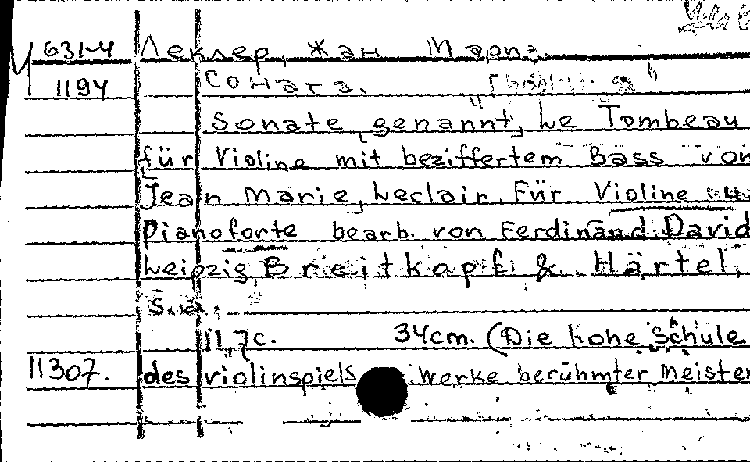 631-4 Леклер, Жан Мари.
1194 Соната.
Sonate, genannt, Le Tombeau
für Violine mit beziffertem Bass von
Jean Marie, Leclair. Für Violine u.
Pianoforte bearb. von Ferdinand David
Leipzig, Breitkopf & Härtel,
S.a.
11,7с. 34cm. (Die hohe Schule
11307. des violinspiels Werke berühmter Meister